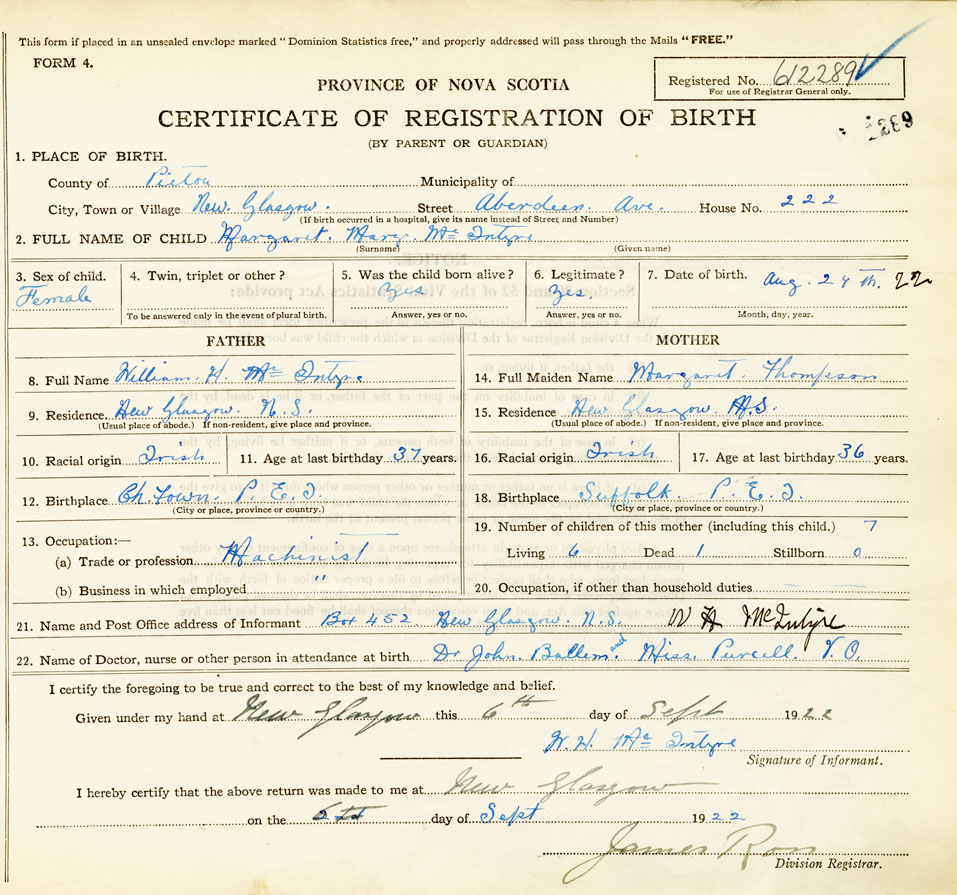 This form if placed in an unsealed envelope marked "Dominion Statistics free," and properly addressed will pass through the Mails "FREE."
FORM 4.
PROVINCE OF NOVA SCOTIA
Registered No. 612289
For use of Registrar General only.
CERTIFICATE OF REGISTRATION OF BIRTH
(BY PARENT OR GUARDIAN)
1. PLACE OF BIRTH.
County of Pictou Municipality of
City, Town or Village New Glasgow. Street Aberdeen Ave. House No. 222
(If birth occurred in a hospital, give its name instead of Street and Number)
2. FULL NAME OF CHILD Margaret. Mary. Mc Intyre
(Surname) (Given name)
3. Sex of child. 4. Twin, triplet or other? 5. Was the child born alive? 6. Legitimate? 7. Date of birth.
Female Yes Yes. Aug. 24th. 22
To be answered only in the event of plural birth. Answer, yes or no. Answer, yes or no. Month, day, year.
FATHER MOTHER
8. Full Name William. H. Mc Intyre 14. Full Maiden Name Margaret. Thompson
9. Residence New Glasgow. N.S. 15. Residence New Glasgow. N.S.
(Usual place of abode.) If non-resident, give place and province. (Usual place of abode.) If non-resident, give place and province.
10. Racial origin Irish 11. Age at last birthday 37 years. 16. Racial origin Irish 17. Age at last birthday 36 years.
12. Birthplace Ch. Town. P. E. I. 18. Birthplace Suffolk. P. E. I.
(City or place, province or country.) (City or place, province or country.)
13. Occupation:— 19. Number of children of this mother (including this child.) 7
(a) Trade or profession Machinist Living 6 Dead 1 Stillborn 0
(b) Business in which employed " 20. Occupation, if other than household duties
21. Name and Post Office address of Informant Box 452. New Glasgow. N.S. W H McIntyre
22. Name of Doctor, nurse or other person in attendance at birth Dr John. Ballem. and Miss. Purcell. V. O.
I certify the foregoing to be true and correct to the best of my knowledge and belief.
Given under my hand at New Glasgow this 6th day of Sept 1922
W. H. Mc Intyre
Signature of Informant.
I hereby certify that the above return was made to me at New Glasgow
on the 6th day of Sept 1922
James Ross
Division Registrar.